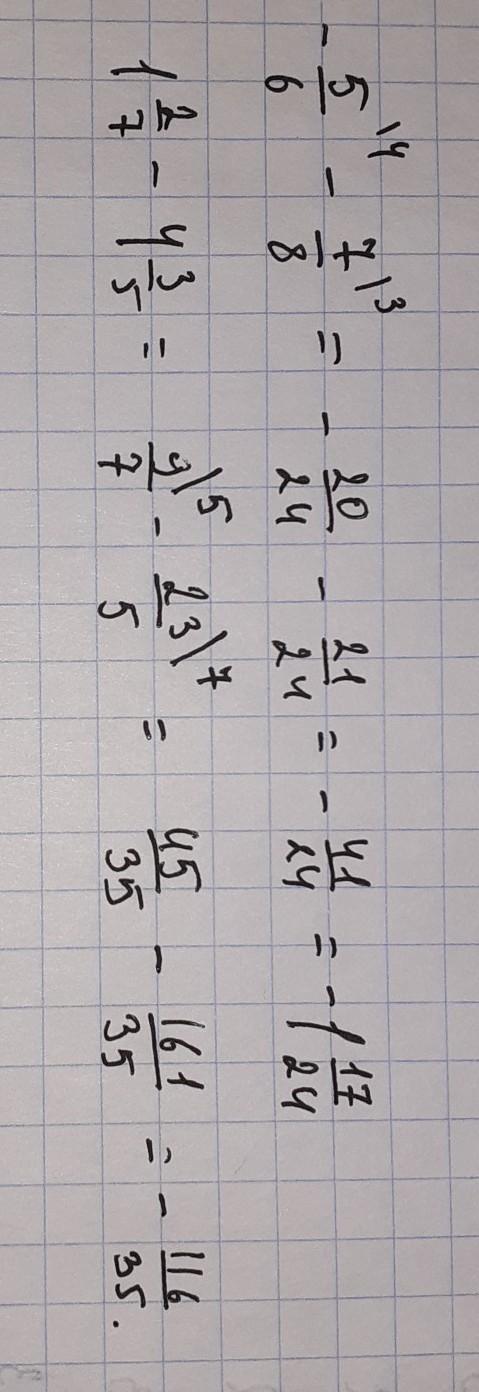 - 5/6 \4 - 7/8 \3 = - 20/24 - 21/24 = - 41/24 = - 1 17/24
1 2/7 - 4 3/5 = 9/7 \5 - 23/5 \7 = 45/35 - 161/35 = - 116/35.